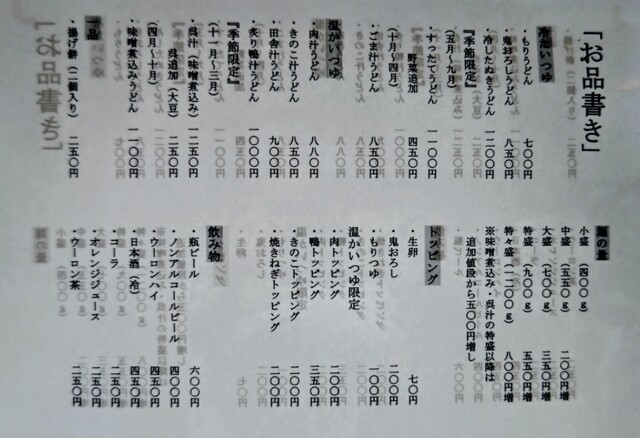 「お品書き」
冷たいつゆ
・もりうどん 七〇〇円
・鬼おろしうどん 八五〇円
・冷したぬきうどん 一二〇〇円
『季節限定』
（五月～九月）
・すったてうどん 一一〇〇円
野菜追加 四五〇円
（十月～四月）
・ごま汁うどん 八五〇円
温かいつゆ
・肉汁うどん 八八〇円
・きのこ汁うどん 八五〇円
・田舎汁うどん 九〇〇円
・炙り鴨汁うどん 一〇〇〇円
『季節限定』
（十一月～三月）
・呉汁（味噌煮込み） 一二五〇円
呉追加（大豆） 二五〇円
（四月～十月）
・味噌煮込みうどん 一一〇〇円
一品
・揚げ餅（二個入り） 二五〇円
麺の量
小盛（四〇〇g）
中盛（五五〇g） 二〇〇円増
大盛（七〇〇g） 三五〇円増
特盛（九〇〇g） 五五〇円増
特々盛（一二〇〇g） 八〇〇円増
※味噌煮込み・呉汁の特盛以降は
追加値段から五〇〇円増し
トッピング
・生卵 七〇円
・鬼おろし 二〇〇円
・もりつゆ 一〇〇円
温かいつゆ限定
・肉トッピング 二〇〇円
・鴨トッピング 三五〇円
・きのこトッピング 二〇〇円
・焼きねぎトッピング 二〇〇円
飲み物
・瓶ビール 六〇〇円
・ノンアルコールビール 四〇〇円
・ウーロンハイ 四五〇円
・日本酒（冷） 四五〇円
・コーラ 二五〇円
・オレンジジュース 二五〇円
・ウーロン茶 二五〇円